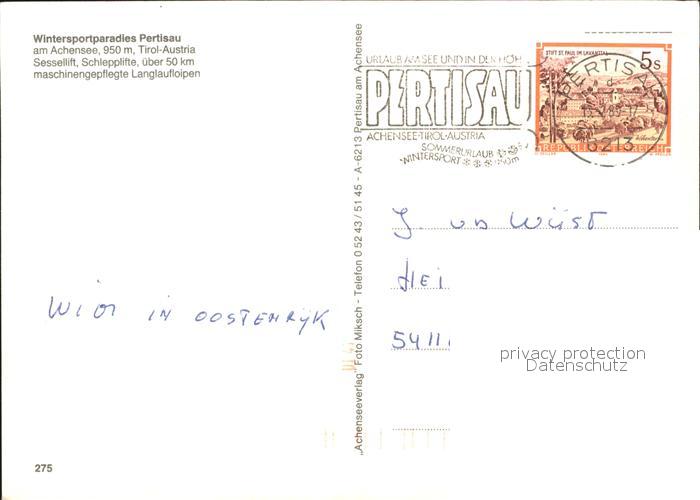 Wintersportparadies Pertisau
am Achensee, 950 m, Tirol-Austria
Sessellift, Schlepplifte, über 50 km
maschinengepflegte Langlaufloipen
WIM IN OOSTENRIJK
275
„Achenseeverlag" Foto Miksch - Telefon 0 52 43 / 51 45 - A-6213 Pertisau am Achensee
URLAUB AM SEE UND IN DER HÖH
PERTISAU
ACHENSEE-TIROL-AUSTRIA
SOMMERURLAUB
WINTERSPORT 950m
STIFT ST. PAUL IM LAVANTTAL
5 S
REPUBLIK ÖSTERREICH
PERTISAU
6213
J. v.d. Wüst
HEI
5411
privacy protection
Datenschutz